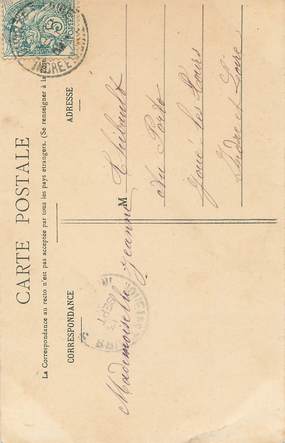 CARTE POSTALE
La Correspondance au recto n'est pas acceptée par tous les pays étrangers. (Se renseigner à la
CORRESPONDANCE
ADRESSE
M
Mademoiselle Jeanne Thibault
au Porto
Joué les Tours
Indre et Loire
INDRE ET
5